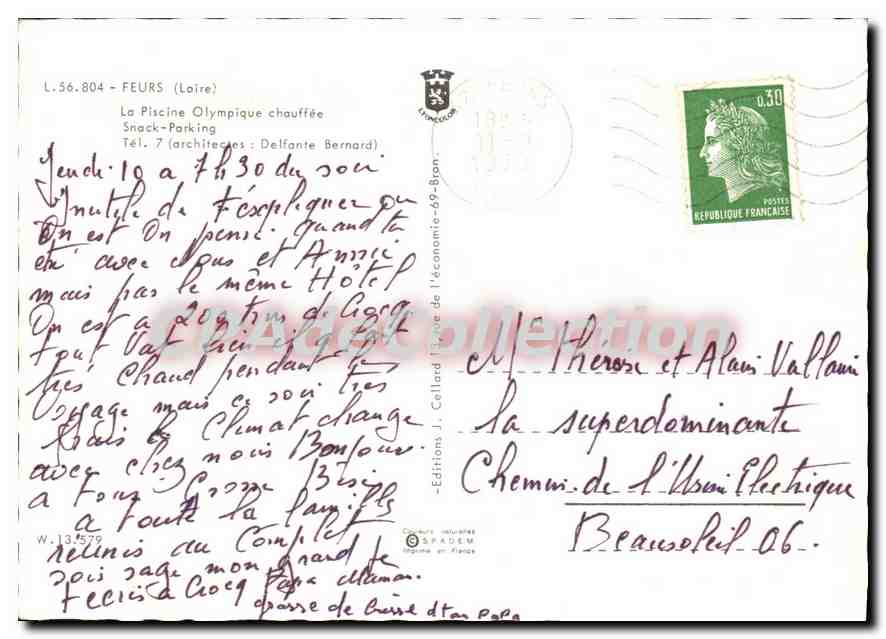 L.56.804 - FEURS (Loire)
La Piscine Olympique chauffée
Snack-Parking
Tél. 7 (architectes : Delfante Bernard)
Jeudi 10 a 7h30 du soir
Inutile de t'expliquer ou
on est on pense quand tu
été avec nous et Annie
mais pas le même Hôtel
On est a 200 km de Crocq
tout vat bien il fesait
très chaud pendant le
voyage mais ce soir très
frais le Climat change
avec chez nous Bonjour
a tous Grosse Bise
a toute la famille
réunis au Complet
sois sage mon grand je
t'ecris a Crocq Papa Maman
grosse de bisse d ton PaPa
LYONCOLOR
-Editions J. Cellard 13, rue de l'économie-69-Bron-
W.13.579
Couleurs naturelles
© SPADEM
Imprimé en France
0,30
POSTES
REPUBLIQUE FRANÇAISE
CPAdeCollection
Me Thérèse et Alain Vallauri
la superdominante
Chemin de l'Usine Electrique
Beausoleil 06.